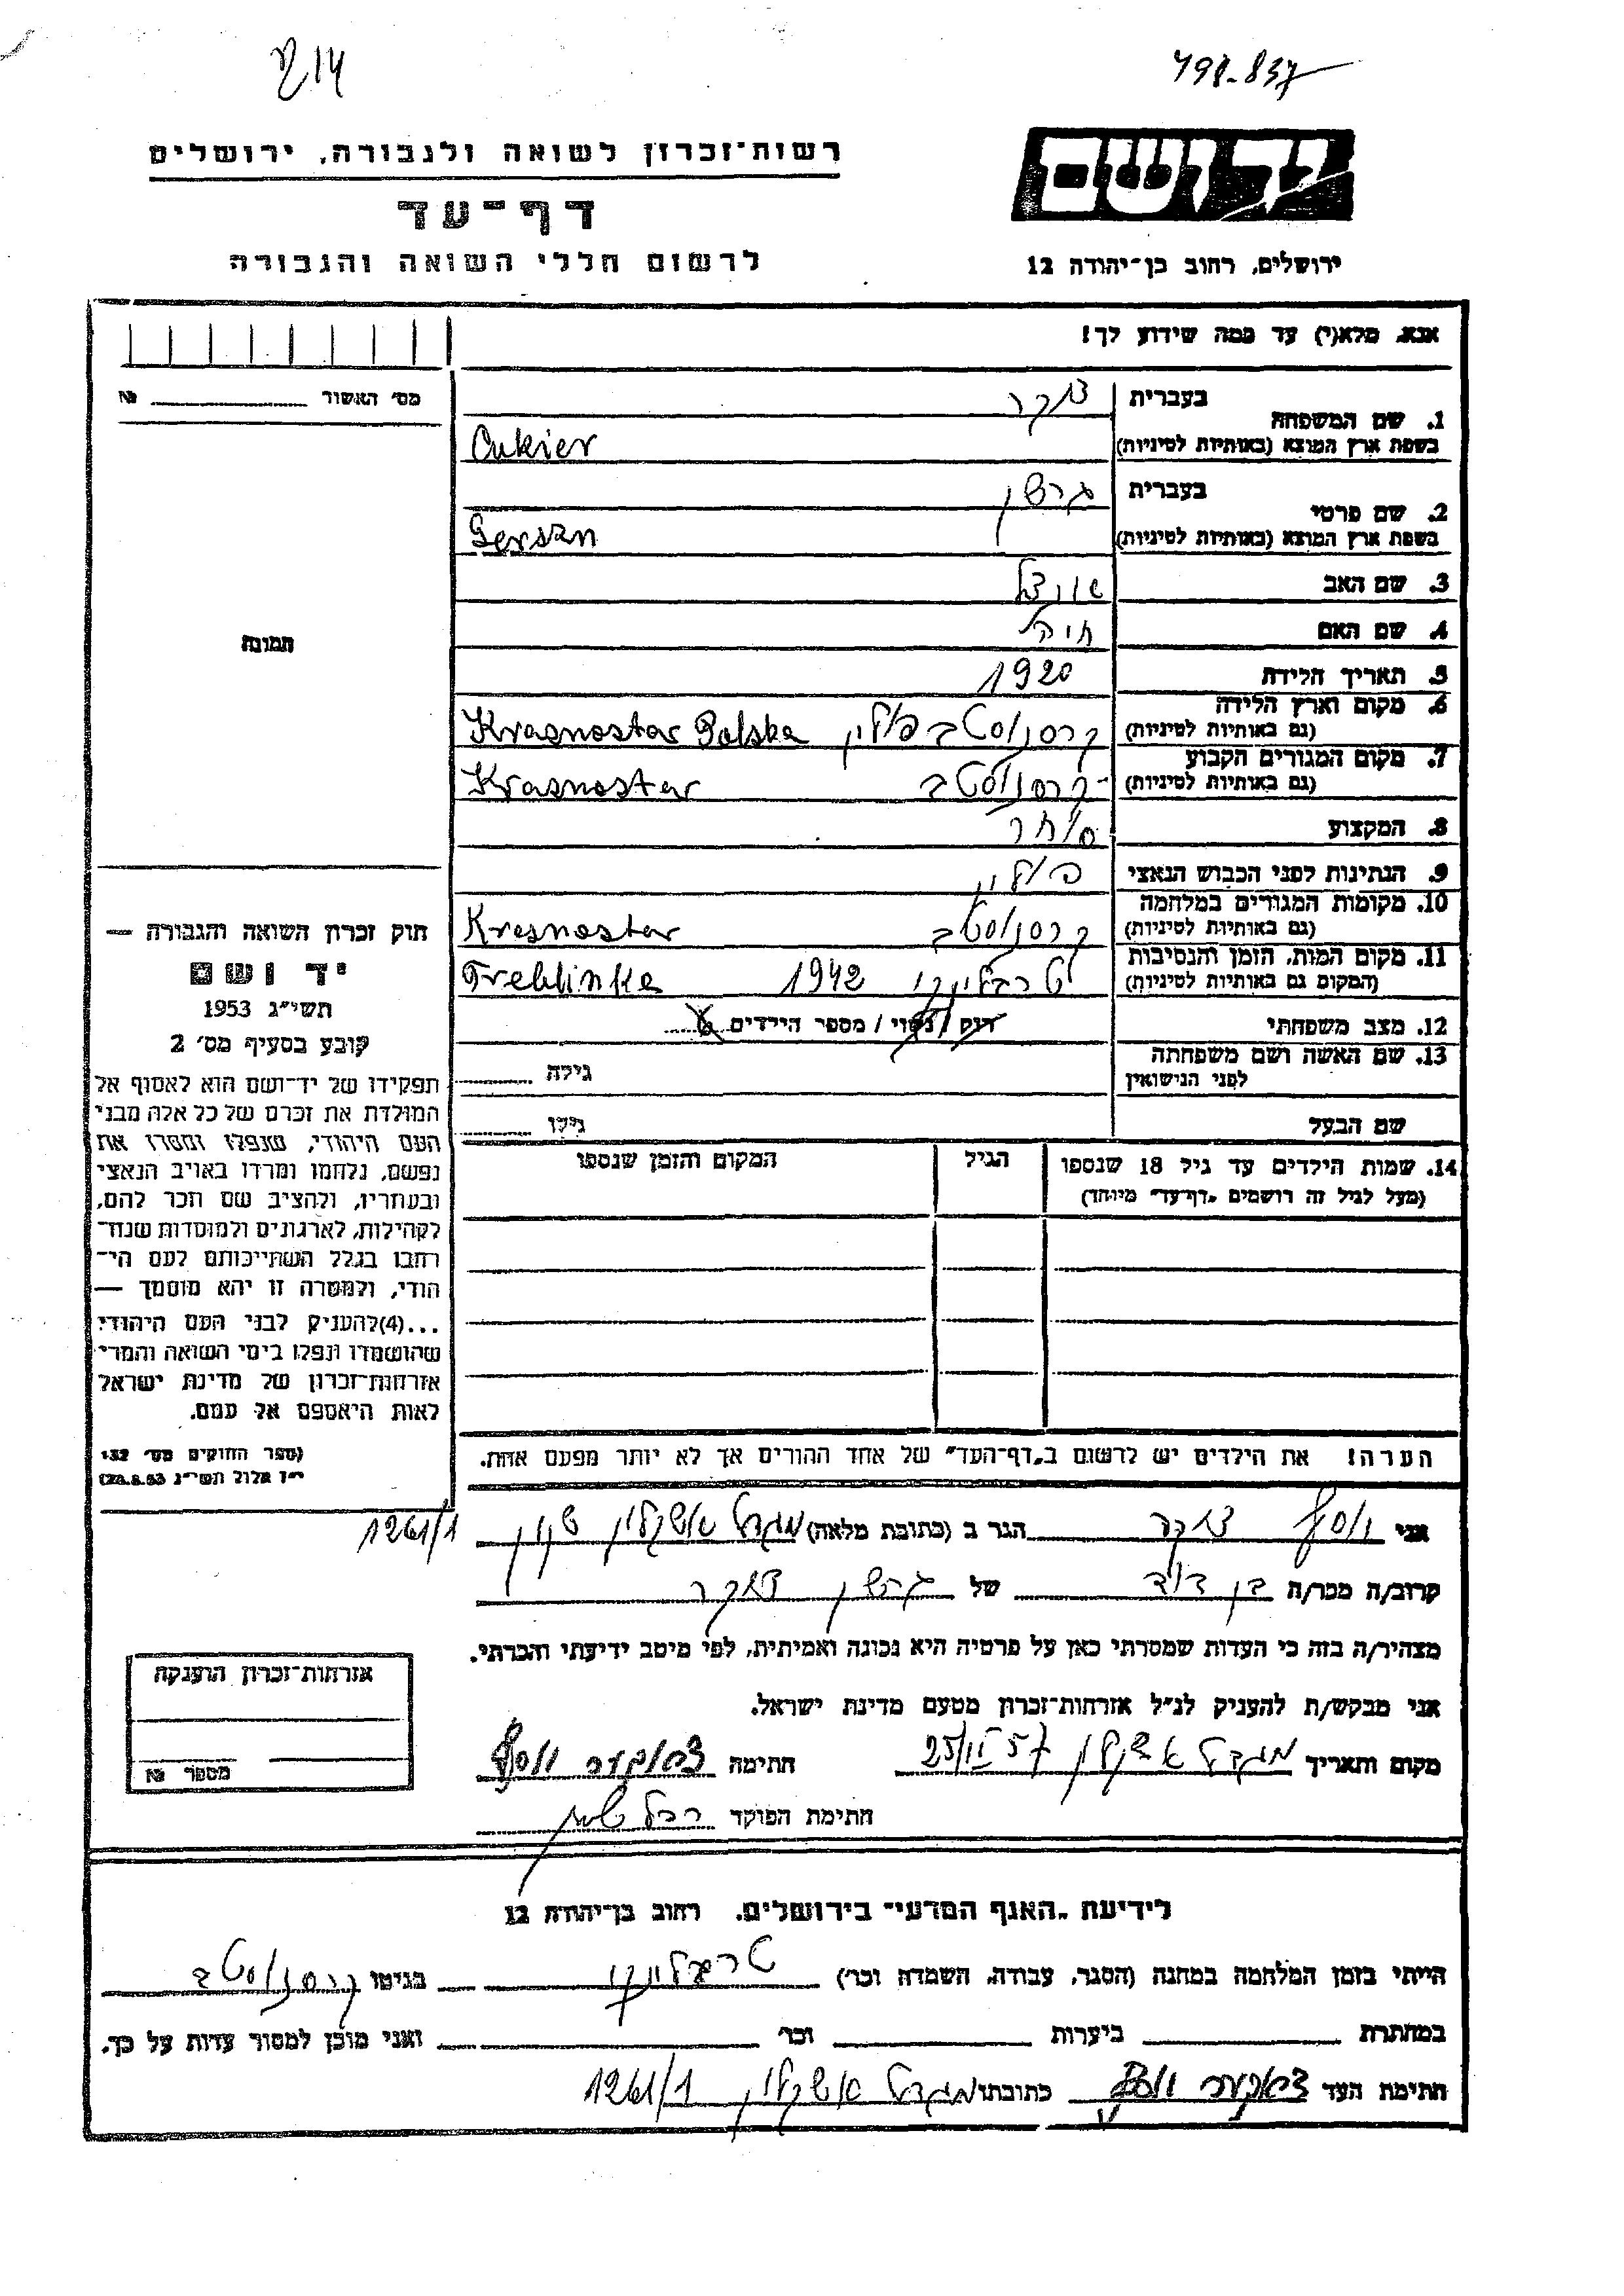 214
798-837
רשות־זכרון לשואה ולגבורה, ירושלים
דף־עד
לרשום חללי השואה והגבורה
יד ושם
ירושלים, רחוב בן־יהודה 12
אנא, מלא(י) עד כמה שידוע לך!
מס׳ האשור № 
1. שם המשפחה בעברית צוקר
בשפת ארץ המוצא (באותיות לטיניות) Cukier
2. שם פרטי בעברית גרשון
בשפת ארץ המוצא (באותיות לטיניות) Gerszn
3. שם האב
4. שם האם חיה
5. תאריך הלידה 1920
6. מקום וארץ הלידה (גם באותיות לטיניות) קרסנוסטב פולין Krasnostav Polska
7. מקום המגורים הקבוע (גם באותיות לטיניות) קרסנוסטב Krasnostav
8. המקצוע סוחר
9. הנתינות לפני הכבוש הנאצי פולין
10. מקומות המגורים במלחמה (גם באותיות לטיניות) קרסנוסטב Kresnostav
11. מקום המות, הזמן והנסיבות (המקום גם באותיות לטיניות) טרבלינקי 1942 Treblinke
12. מצב משפחתי רווק / נשוי / מספר הילדים
13. שם האשה ושם משפחתה לפני הנישואין גילה
שם הבעל גילו
14. שמות הילדים עד גיל 18 שנספו הגיל המקום והזמן שנספו
(מעל לגיל זה רושמים „דף־עד״ מיוחד)
תמונה
חוק זכרון השואה והגבורה —
יד ושם
תשי״ג 1953
קובע בסעיף מס׳ 2
תפקידו של יד־ושם הוא לאסוף אל
המולדת את זכרם של כל אלה מבני
העם היהודי, שנפלו ומסרו את
נפשם, נלחמו ומרדו באויב הנאצי
ובעוזריו, ולהציב שם וזכר להם,
לקהילות, לארגונים ולמוסדות שנח־
רבו בגלל השתייכותם לעם הי־
הודי, ולמטרה זו יהא מוסמך —
...(4)להעניק לבני העם היהודי
שהושמדו ונפלו בימי השואה והמרי
אזרחות־זכרון של מדינת ישראל
לאות היאספם אל עמם.
(ספר החוקים מס׳ 132
י״ז אלול תשי״ג 28.8.53)
הערה! את הילדים יש לרשום ב„דף־העד״ של אחד ההורים אך לא יותר מפעם אחת.
אני יוסף צוקר הגר ב (כתובת מלאה) מגדל אשקלון שכון 1261/1
קרוב/ה מכר/ה בן דוד של גרשון צוקר
מצהיר/ה בזה כי העדות שמסרתי כאן על פרטיה היא נכונה ואמיתית, לפי מיטב ידיעתי והכרתי.
אני מבקש/ת להעניק לנ״ל אזרחות־זכרון מטעם מדינת ישראל.
מקום ותאריך מגדל אשקלון 25/II 57 חתימה צוקער יוסף
חתימת הפוקד
אזרחות־זכרון הוענקה
מספר №
לידיעת „האגף המדעי״ בירושלים. רחוב בן־יהודה 12
הייתי בזמן המלחמה במחנה (הסגר, עבודה, השמדה וכו׳) טרבלינקי בגיטו קרסנוסטב
במחתרת ביערות וכו׳ ואני מוכן למסור עדות על כך.
חתימת העד צוקער יוסף כתובתו מגדל אשקלון 1261/1